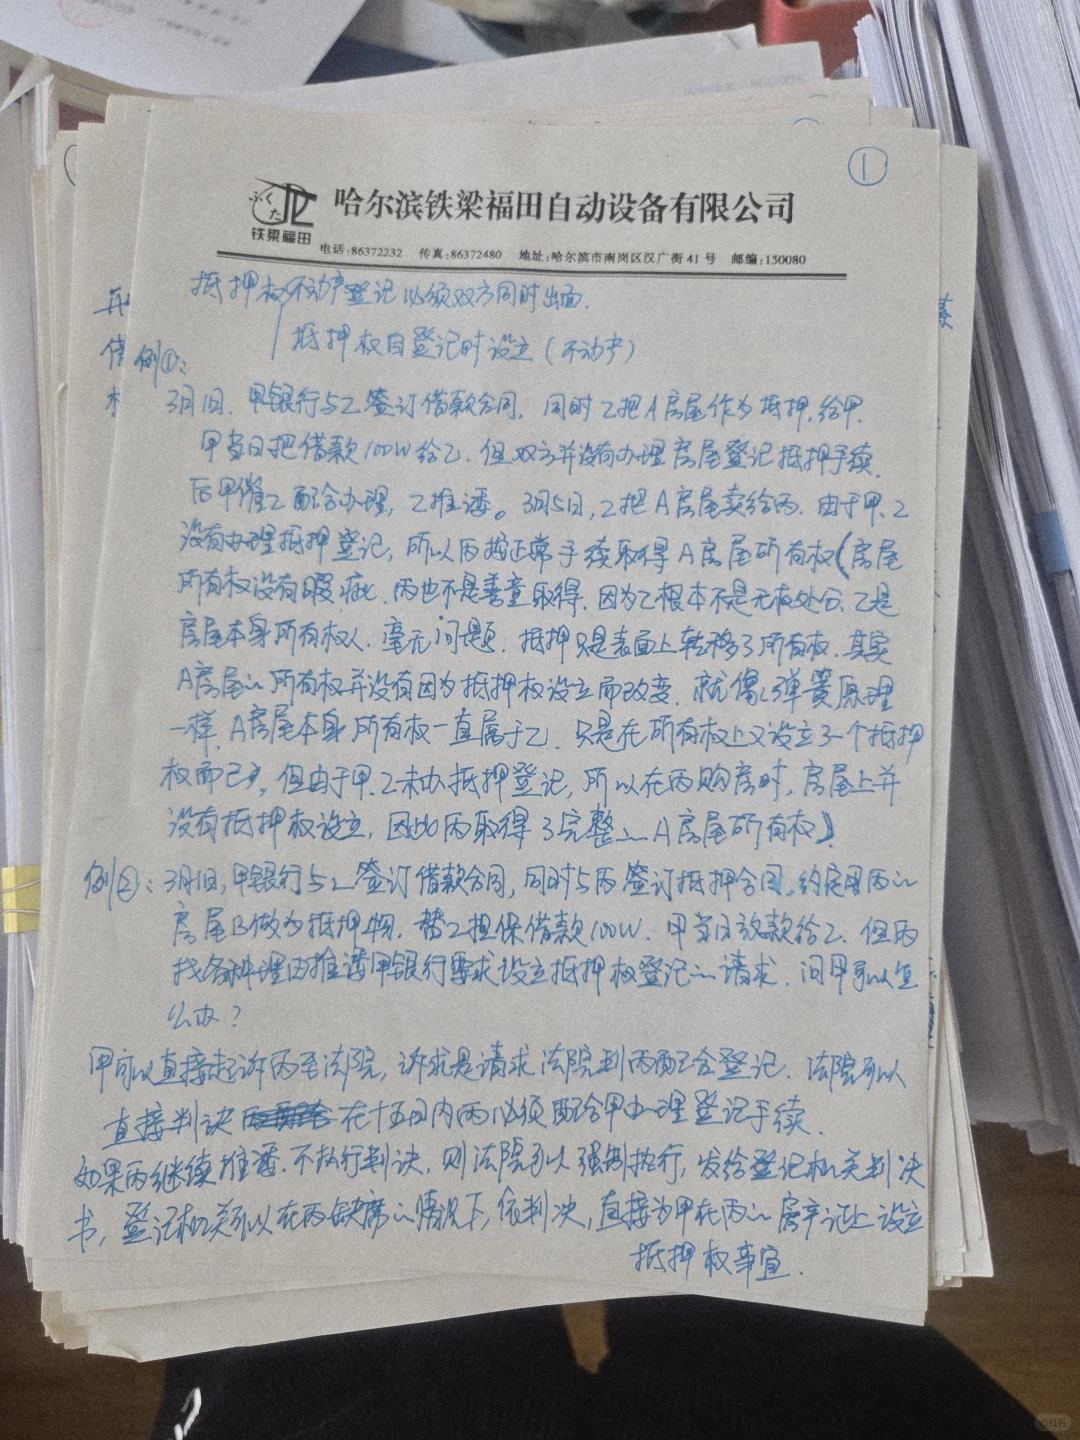 ①
ふくた
铁梁福田
哈尔滨铁梁福田自动设备有限公司
电话:86372232 传真:86372480 地址:哈尔滨市南岗区汉广街41号 邮编:150080
抵押权不动产登记必须双方同时出面.
抵押权自登记时设立(不动产)
例①:
3月1日.甲银行与乙签订借款合同.同时乙把A房屋作为抵押.给甲.
甲当日把借款100W给乙.但双方并没有办理房屋登记抵押手续.
后甲催乙配合办理,乙推诿。3月5日,乙把A房屋卖给丙.由于甲.乙
没有办理抵押登记,所以丙按正常手续取得A房屋所有权(房屋
所有权没有瑕疵.丙也不是善意取得.因为乙根本不是无权处分.乙是
房屋本身所有权人.毫无问题.抵押只是表面上转移了所有权.其实
A房屋的所有权并没有因为抵押权设立而改变.就像弹簧原理
一样.A房屋本身所有权一直属于乙.只是在所有权上又设立了一个抵押
权而已,但由于甲.乙未办抵押登记,所以在丙购房时,房屋上并
没有抵押权设立,因此丙取得了完整的A房屋所有权)
例②:3月1日,甲银行与乙签订借款合同,同时与丙签订抵押合同,约定用丙的
房屋B做为抵押物.替乙担保借款100W.甲当日放款给乙.但丙
找各种理由推诿甲银行要求设立抵押权登记的请求.问甲可以怎
么办?
甲可以直接起诉丙至法院,诉求是请求法院判丙配合登记.法院可以
直接判决在十五日内丙必须配合甲办理登记手续.
如果丙继续推诿.不执行判决.则法院可以强制执行,发给登记机关判决
书,登记机关可以在丙缺席的情况下,依判决,直接为甲在丙的房产证上设立
抵押权事宜.